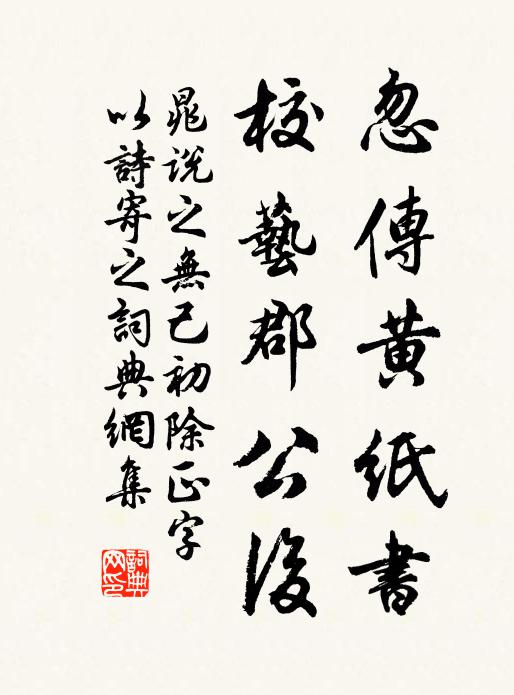 忽傳黃紙書
校藝郡公後
晁說之無己初除正字
以詩寄之詞典網集
詞典網印